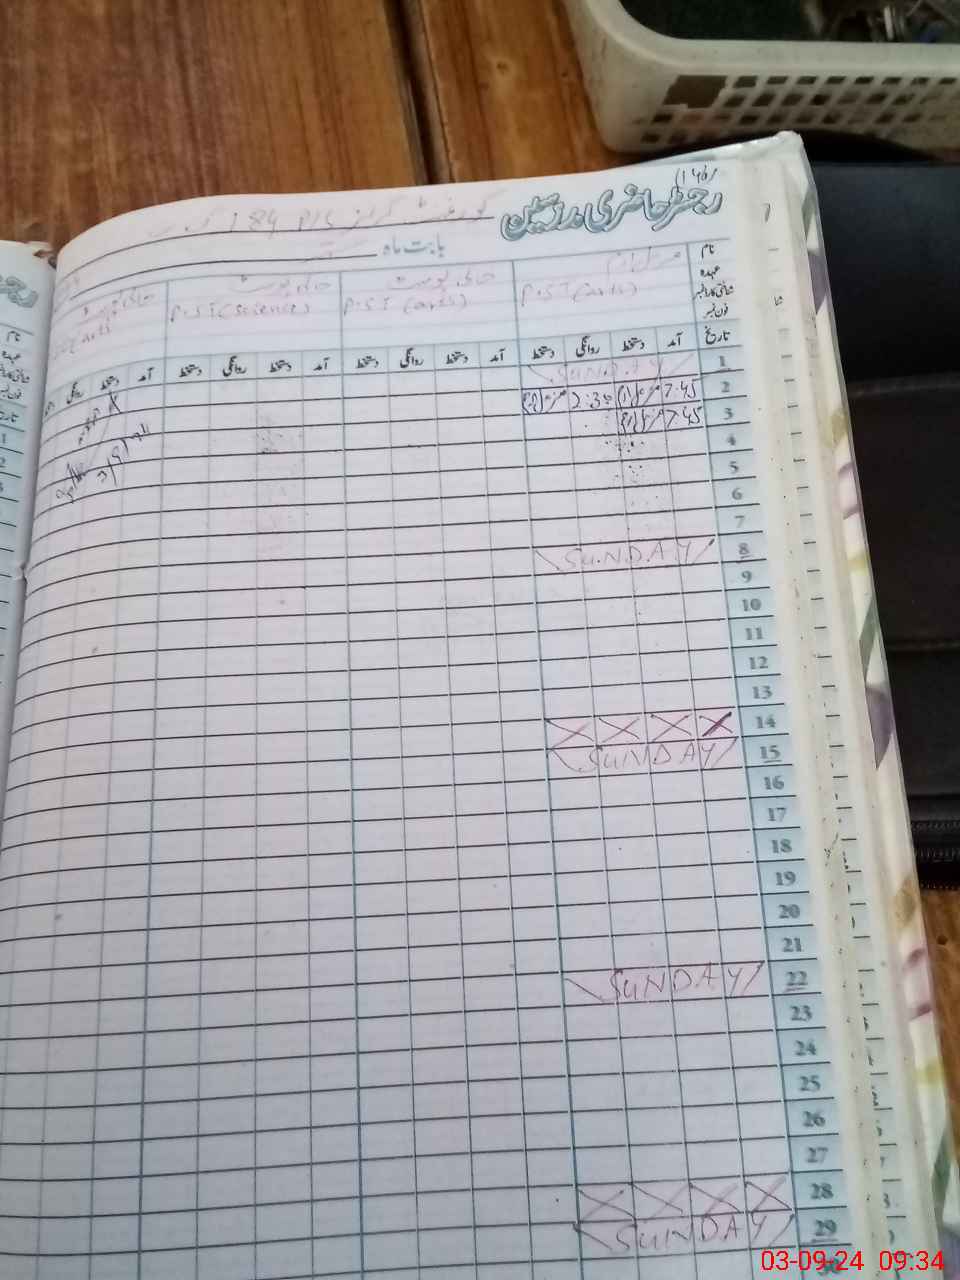 رجسٹر حاضری مدرسین
گورنمنٹ گرلز P/S 184
بابت ماہ
نام
عہدہ
شناختی کارڈ نمبر
فون نمبر
خالی پوسٹ خالی پوسٹ
P.S.T (arts) P.S.T (arts) P.S.T (Science)
تاریخ آمد دستخط روانگی دستخط آمد دستخط روانگی دستخط آمد دستخط روانگی دستخط آمد دستخط روانگی
1 SUNDAY
2 7:45 2:30
3 7:45
4
5
6
7
8 SUNDAY
9
10
11
12
13
14 X X X X
15 SUNDAY
16
17
18
19
20
21
22 SUNDAY
23
24
25
26
27
28 X X X X
29 SUNDAY
03-09-24 09:34